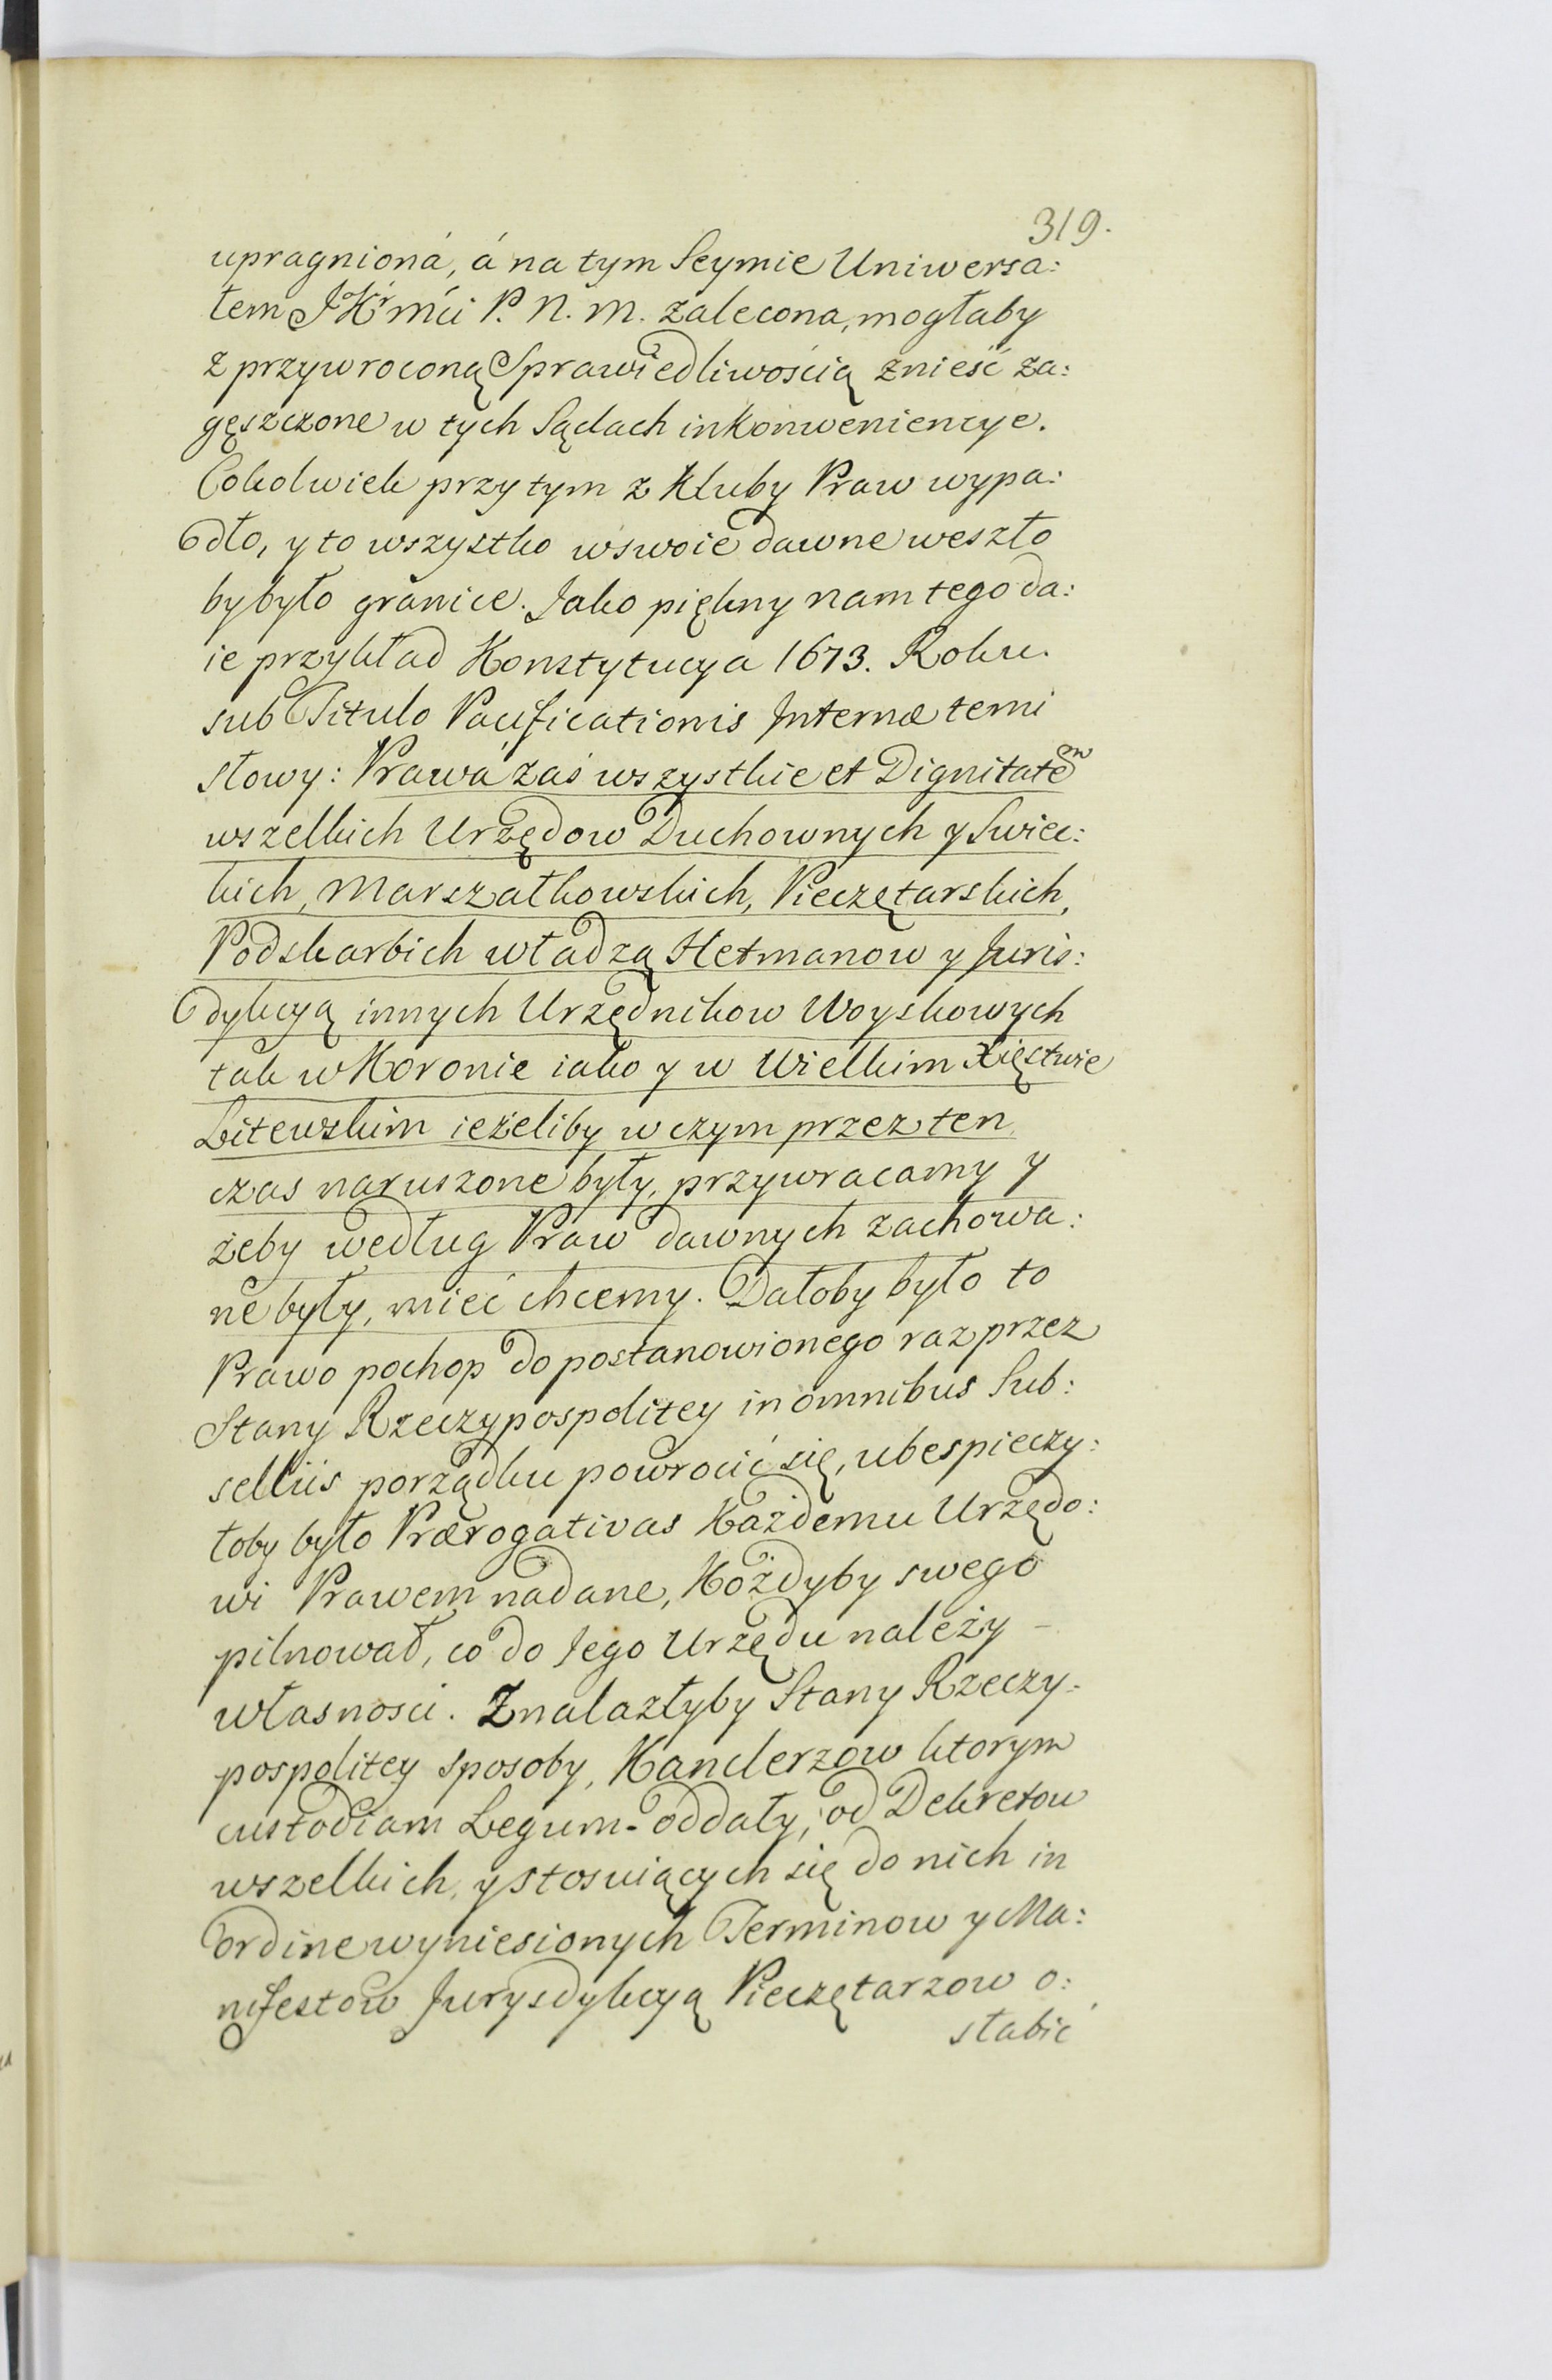 319.
upragnioná, á na tym Seymie Uniwersa:
łem JKr̃mći P. N. M. zalecona, mogłaby
z przywroconą Sprawiedliwością znieść za:
gęszczone w tych Sądach inkonweniencye.
Cokolwiek przy tym z Kluby Praw wypa:
dło, y to wszystko w swoie dawne weszło
by było granice. Jako piękny nam tego da:
ie przykład Konstytucya 1673. Roku.
sub Titulo Pacificationis Internæ temi
słowy: Prawá zaś wszystkie et Dignitatem
wszelkich Urzędow Duchownych y Swiec:
kich, Marszałkowskich, Pieczętarskich,
Podskarbich władzą Hetmanow y Juris:
dykcyą innych Urzędnikow Woyskowych
tak w Koronie iako y w Wielkim Xięstwie
Litewskim ieżeliby w czym przez ten
czas naruszone były, przywracamy y
żeby według Praw dawnych zachowa:
ne były, mieć chcemy. Dałoby było to
Prawo pochop do postanowionego raz przez
Stany Rzeczypospolitey in omnibus Sub:
selliis porządku powrocić się, ubespieczy:
łoby było Prærogativas Każdemu Urzędo:
wi Prawem nadane, Kożdyby swego
pilnował, co do Jego Urzędu należy -
własnosci. Znalazłyby Stany Rzeczy-
pospolitey sposoby, Kanclerzow ktorym
custodiam Legum oddały, od Dekretow
wszelkich, y stosuiących się do nich in
ordine wyniesionych Terminow y Ma:
nifestow Jurysdykcyą Pieczętarzow o:
słabić